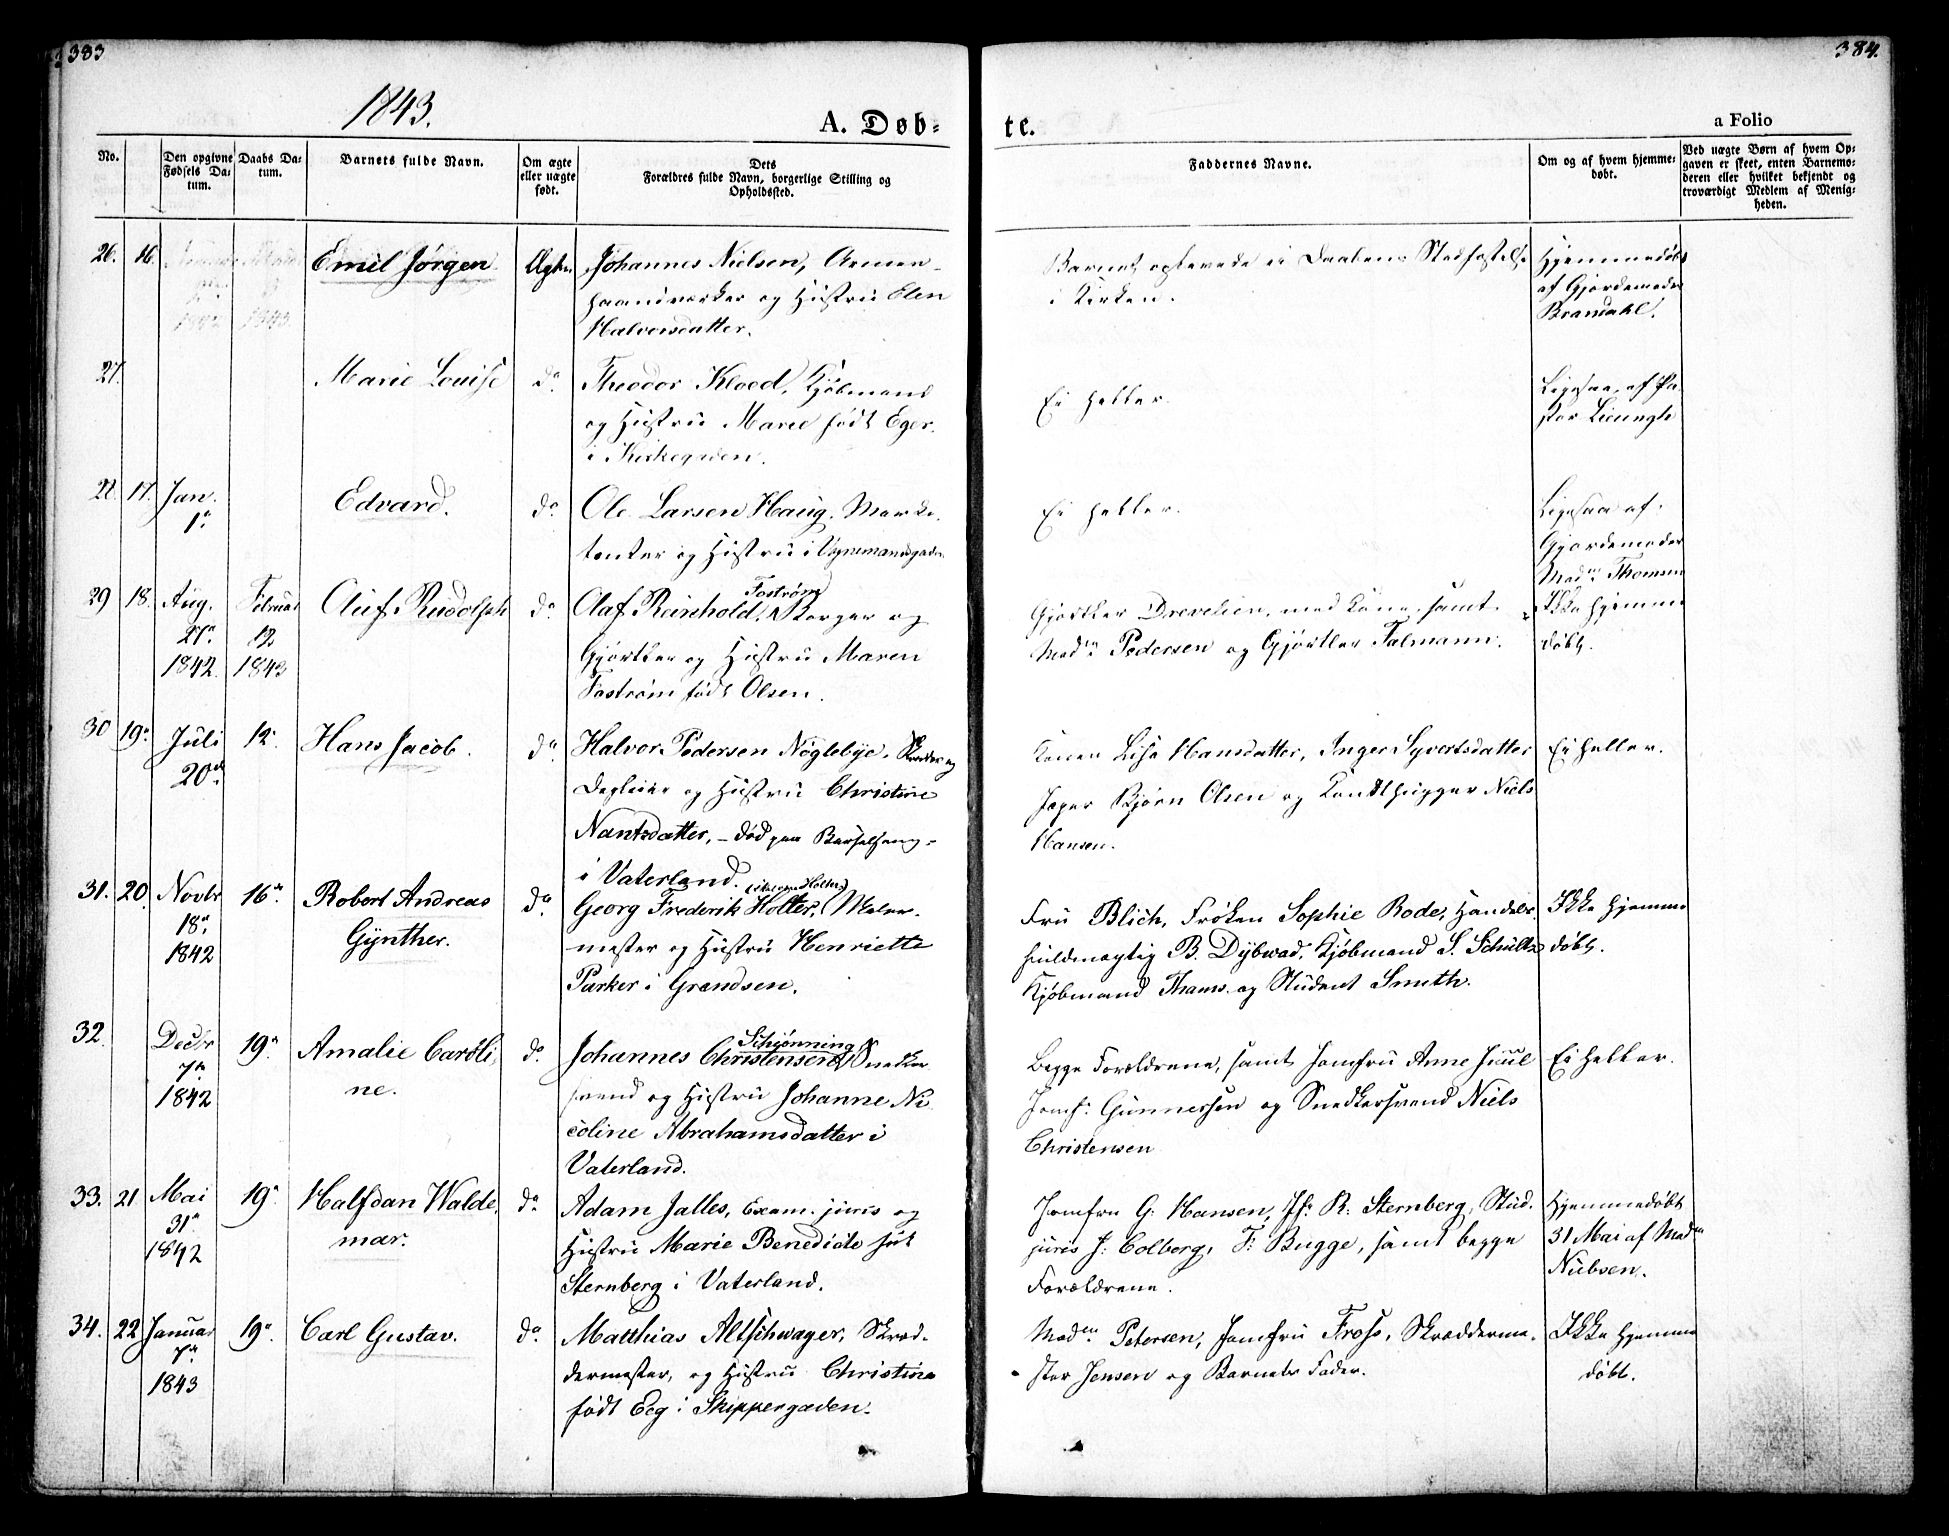 383
384.
1843.
A. Døb-
te.
a Folio
No.
Den opgivne Fødsels Datum.
Daabs Datum.
Barnets fulde Navn.
Om ægte eller uægte født.
Dets Forældres fulde Navn, borgerlige Stilling og Opholdssted.
Faddernes Navne.
Om og af hvem hjemmedøbt.
Ved uægte Børn af hvem Opgaven er skeet, enten Barnemoderen eller hvilket bekjendt og troværdigt Medlem af Menigheden.
26. 16. Emil Jørgen. Ægte. Johannes Nielsen,
og Hustru Elen
Halvorsdatter.
Barnet oplevede ei Daabens Stadfæstelse
i Kirken.
Hjemmedøbt
af Gjordemoder
Bramdahl.
27. Marie Louise do. Theodor Kloed, Kjøbmand
og Hustru Marie født Eger
i Kirkegaden.
Ei heller.
Ligesaa af Pa-
stor
28. 17. Jan. 1. Edvard. do. Ole Larsen Haug, Marke-
tenter og Hustru i Vognmandsgaden
Ei heller.
Ligesaa af
Gjordemoder
Madm. Thomsen
29 18. Aug. 27. 1842. Februar 12 1843 Oluf Rudolph do. Olaf Reinhold Fostrøm, Korger og
Gjørtler og Hustru Maren
Fostrøm født Olsen.
Gjørtler Drevelien, med Kone, samt
Madm. Pedersen og Gjørtler Talmann.
Ikke hjemme
døbt.
30 19. Juli 20de 12. Hans Jacob. do. Halvor Pedersen Nøglebye,
og Hustru Christine
Nantsdatter, - død paa Barselseng -
i Vaterland.
Konen Lisa Hansdatter, Inger Syvertsdatter
Jæger Bjørn Olsen og Niels
Hansen.
Ei heller.
31. 20. Novbr 18. 1842 16. Robert Andreas
Gynther.
do. Georg Frederik Holter, Maler-
mester og Hustru Henriette
Parker i Grændsen.
Fru Blich, Frøken Sophie Rode, Handels-
fuldmægtig B. Dybwad, Kjøbmand S. Schultz
Kjøbmand Thams og Student Smith.
Ikke hjemme
døbt.
32. Decbr 7. 1842 19. Amalie Caroli-
ne.
do. Johannes Christensen Schiønning, Snedker
svend og Hustru Johanne Ni-
coline Abrahamsdatter i
Vaterland.
Begge Forældrene, samt Jomfru Anne Juul
Jomf. Gunnersen og Snedkersvend Niels
Christensen
Ei heller.
33. 21 Mai 31. 1842 19. Halfdan Walde-
mar.
do. Adam Jalles, Exam. juris og
Hustru Marie Benedicte født
Sternberg i Vaterland.
Jomfru G. Hansen, Jfr. R. Sternberg, Stud.
juris J. Colborg, F. Bugge, samt begge
Forældrene.
Hjemmedøbt
31 Mai af Madm
Nielsen.
34. 22 Januar 7. 1843 19. Carl Gustav. do. Matthias Altschwager, Skræd-
dermester, og Hustru Christine
født Eeg i Skippergaden.
Madm Petersen, Jomfru Fross, Skrædderme-
ster Jensen og Barnets Fader.
Ikke hjemme
døbt.